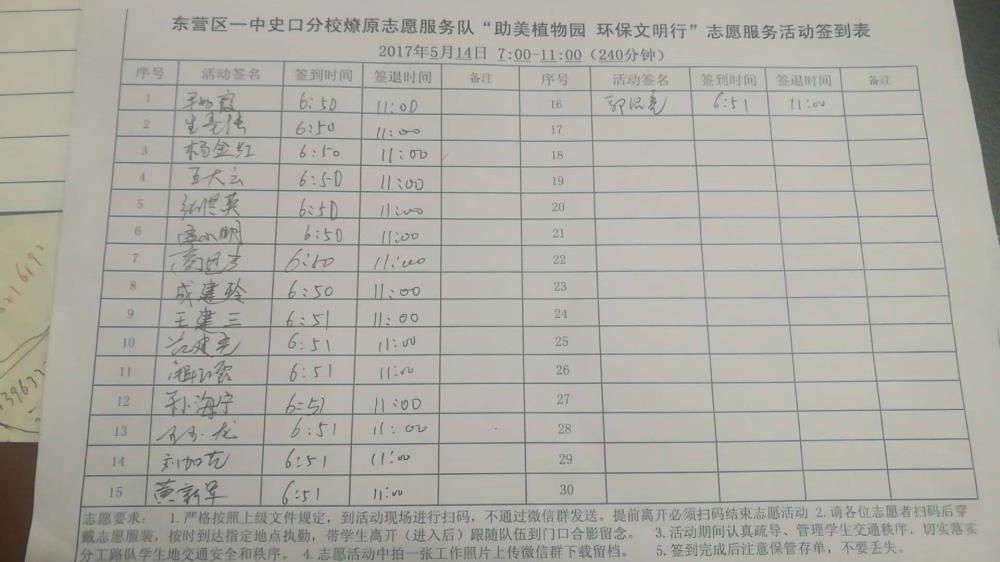 东营区一中史口分校燎原志愿服务队“助美植物园 环保文明行”志愿服务活动签到表
2017年5月14日 7:00-11:00（240分钟）
序号 活动签名 签到时间 签退时间 备注 序号 活动签名 签到时间 签退时间 备注
1 6:50 11:00 16 6:51 11:00
2 6:50 11:00 17
3 杨金红 6:50 11:00 18
4 王大云 6:50 11:00 19
5 6:50 11:00 20
6 6:50 11:00 21
7 6:50 11:00 22
8 成建玲 6:50 11:00 23
9 王建三 6:51 11:00 24
10 6:51 11:00 25
11 6:51 11:00 26
12 孙海宁 6:51 11:00 27
13 6:51 11:00 28
14 6:51 11:00 29
15 黄新军 6:51 11:00 30
志愿要求： 1.严格按照上级文件规定，到活动现场进行扫码，不通过微信群发送。提前离开必须扫码结束志愿活动 2.请各位志愿者扫码后穿
戴志愿服装，按时到达指定地点执勤，带学生离开（进入后）跟随队伍到门口合影留念。 3.活动期间认真疏导、管理学生交通秩序，切实落实
分工路队学生地交通安全和秩序。 4.志愿活动中拍一张工作照片上传微信群下载留档。 5.签到完成后注意保管存单，不要丢失。